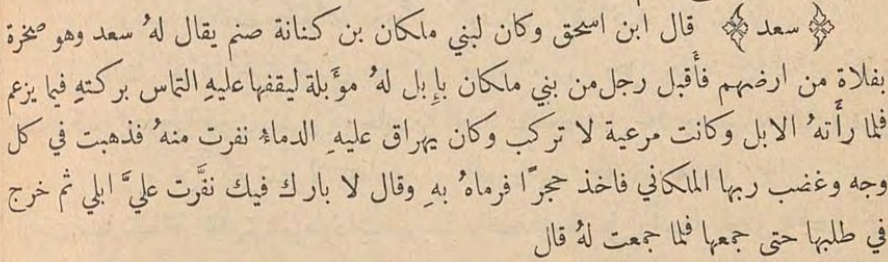 ﴿ سعد ﴾ قال ابن اسحق وكان لبني ملكان بن كنانة صنم يقال لهُ سعد وهو صخرة
بفلاة من ارضهم فأَقبل رجل من بني ملكان بإِبل لهُ موَّبلة ليقفها عليهِ التماس بركتهِ فيما يزعم
فلما رأَتهُ الابل وكانت مرعية لا تركب وكان يهراق عليهِ الدماءُ نفرت منهُ فذهبت في كل
وجه وغضب ربها الملكاني فاخذ حجرًا فرماهُ بهِ وقال لا بارك فيك نفَّرت عليَّ ابلي ثم خرج
في طلبها حتى جمعها فلما جمعت لهُ قال